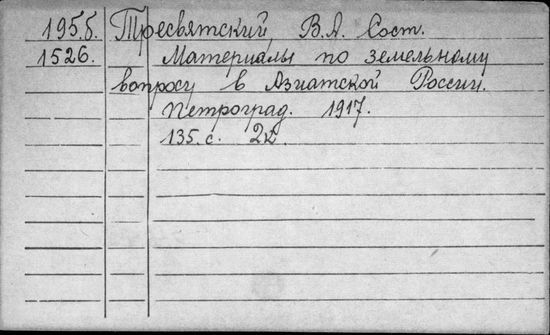 195б. Тресвятский, В.А. Сост.
1526. Материалы по земельному
вопросу в Азиатской России.
Петроград. 1917.
135.с. 2к.